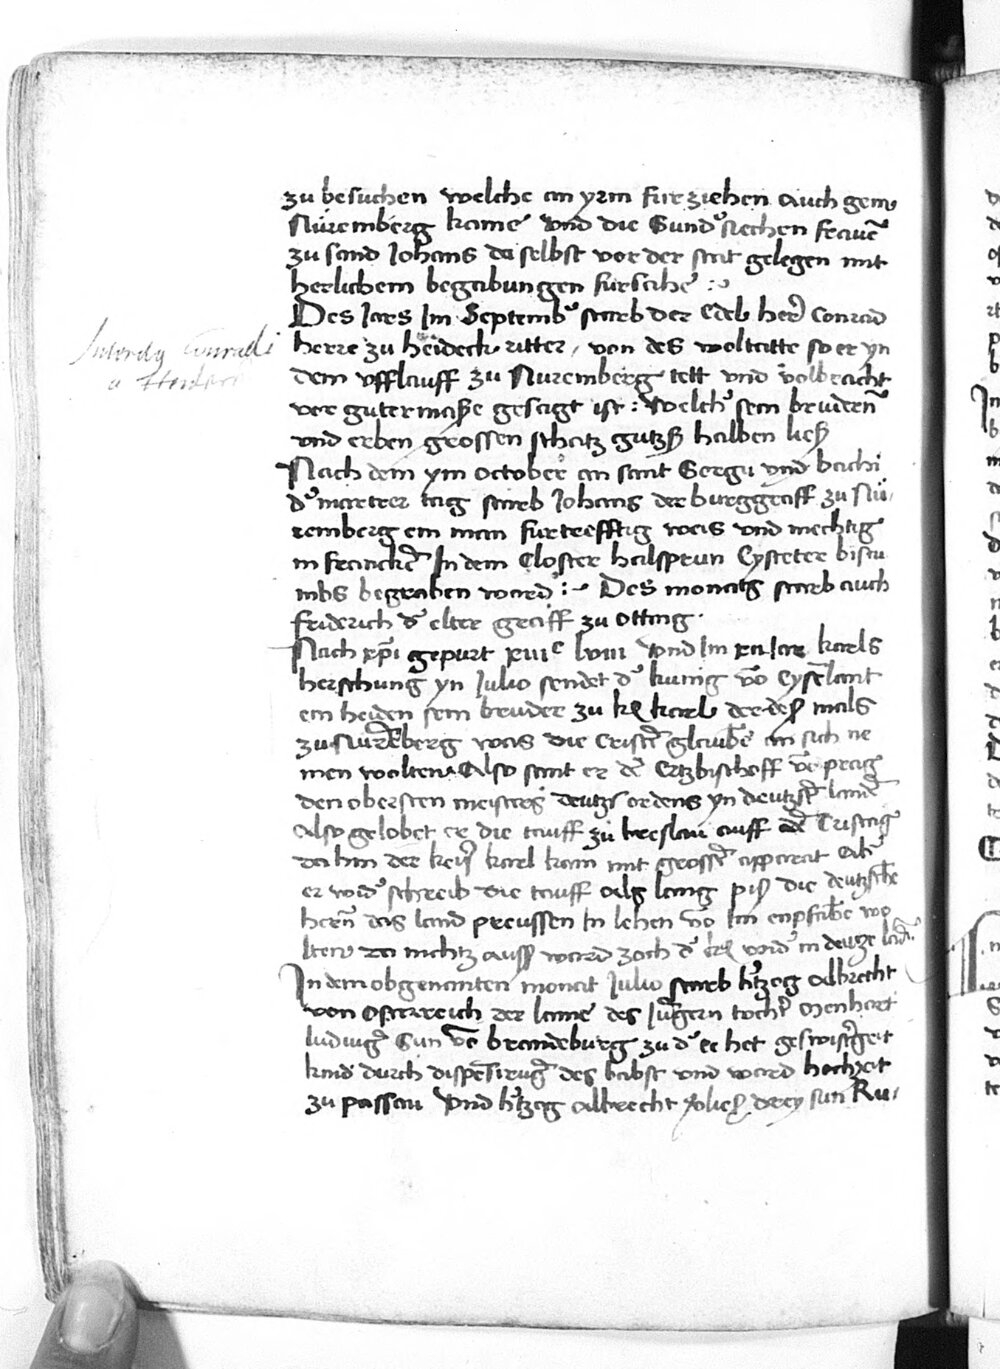 zu besuchen welche an yrm furziehen auch gem
Nüremberg kame vnd die Sundsiechen frauē
zu sand Johans da selbst vor der stat gelegen mit
herlichem begabungen fursahe :~
Des Jars Im Septemb' starb der Edel her Conrad
herre zu heideck ritter, von des woltatte so er yn
dem vfflauff zu Nuremberg tett vnd volbracht
vor guter masse gesagt ist : welch' sein brudern
vnd erben grossen schatz gutz halben lieſz
Nach dem ym October an sant Sergii vnd bachi
d' martrer tag starb Johans der burggraff zu Nü-
remberg ein man furtrefftig weis vnd mechtig
in franckē In dem Closter halsprun Eysteter bistu
mbs begraben ward :~ Des monatz starb auch
friderich d' elter graff zu Otting.
Nach xpi gepurt xiiiᶜ lviii vnd Im Jar karls
herschung yn Julio sendet d' kunig vō Eyselant
ein heiden sein bruder zu karl der des mals
zu Nurēberg was die Cristē glaubē an sich ne
men wolten Also sant er dē Ertzbischoff vō prag
den obersten meister deutzs ordens yn deutzschē landē
Also gelobet er die tauff zu breslau auff dē Cristag
da hin der keys' karl kam mit grossē apparat Ab'
er wid' schreib die tauff als lang piſz die deutzsche
hern das land preussen In lehen vō Im enpfahē wo
lten da nichtz auſz ward zoch d' wid' in deutze land
In dem obgenanten monat Julio starb h'tzog albrecht
von Osterreich der lame des Jungern tocht' Menhart
ludwigs Sun vō brandeburg zu d' ee het geswistergeit
kind durch dispensirung des babst vnd ward hochzeit
zu passau vnd h'tzog albrecht vlieſz drey sun Ru-
Conradi
a